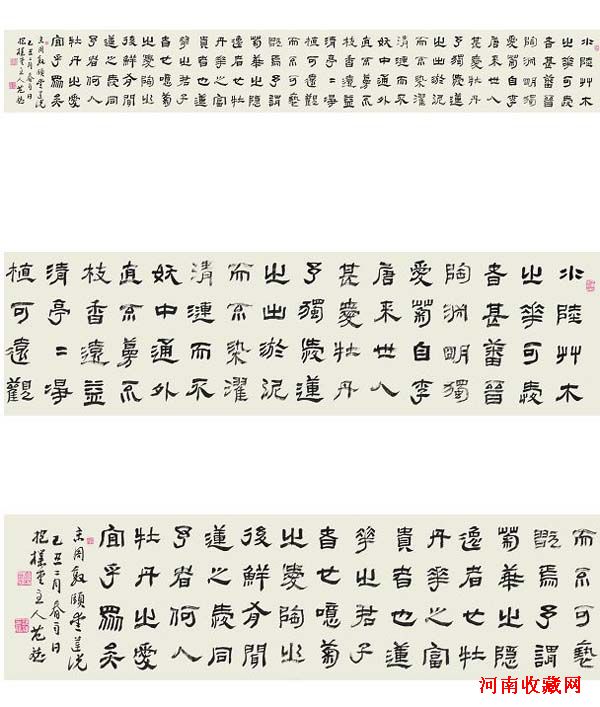 水陸艸木
之華可愛
者甚蕃晉
陶淵明獨
愛菊自李
唐来世人
甚愛牡丹
予獨愛蓮
之出淤泥
而不染濯
清漣而不
妖中通外
直不蔓不
枝香遠益
清亭〻淨
植可遠觀
而不可褻
翫焉予謂
菊華之隱
逸者也牡
丹華之富
貴者也蓮
華之君子
者也噫菊
之愛陶之
後鮮有聞
蓮之愛同
予者何人
牡丹之愛
宜乎眾矣
周敦頤愛蓮说
己丑二月春日
抱樸堂主人范
水陸艸木
之華可愛
者甚蕃晉
陶淵明獨
愛菊自李
唐来世人
甚愛牡丹
予獨愛蓮
之出淤泥
而不染濯
清漣而不
妖中通外
直不蔓不
枝香遠益
清亭〻淨
植可遠觀
而不可褻
翫焉予謂
菊華之隱
逸者也牡
丹華之富
貴者也蓮
華之君子
者也噫菊
之愛陶之
後鮮有聞
蓮之愛同
予者何人
牡丹之愛
宜乎眾矣
周敦頤愛蓮说
己丑二月春日
抱樸堂主人范
河南收藏网